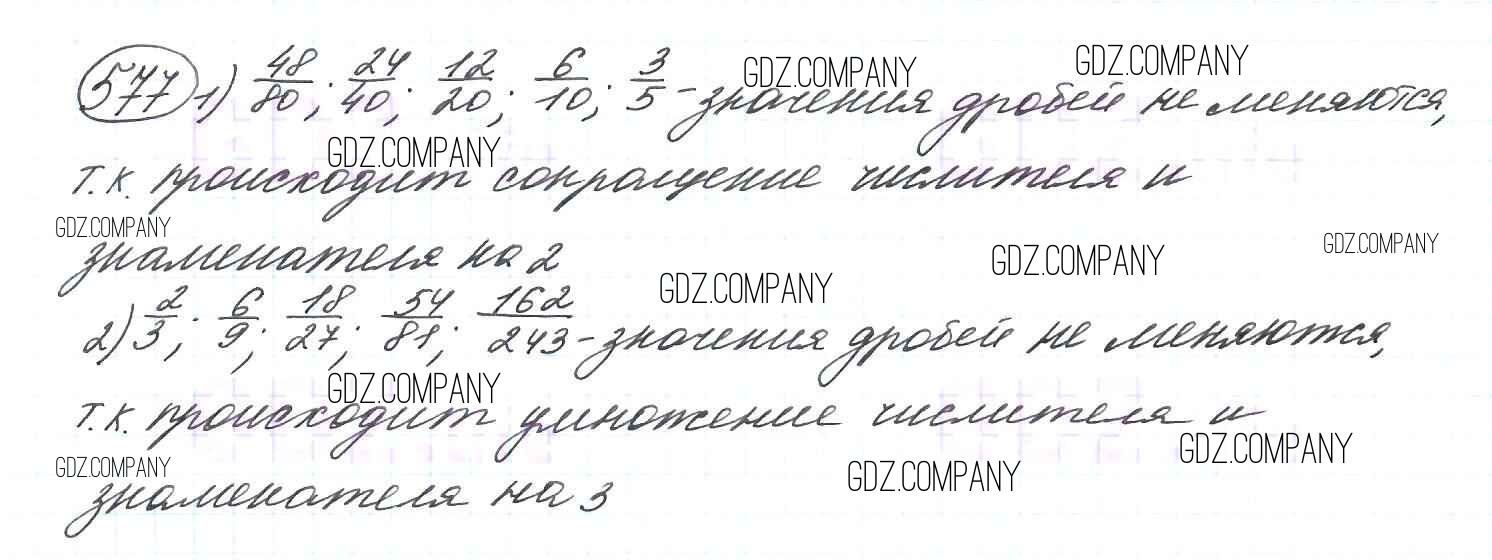 577 1) 48/80; 24/40; 12/20; 6/10; 3/5 - значения дробей не меняются,
т.к. происходит сокращение числителя и
знаменателя на 2
2) 2/3; 6/9; 18/27; 54/81; 162/243 - значения дробей не меняются,
т.к. происходит умножение числителя и
знаменателя на 3
GDZ.COMPANY
GDZ.COMPANY
GDZ.COMPANY
GDZ.COMPANY
GDZ.COMPANY
GDZ.COMPANY
GDZ.COMPANY
GDZ.COMPANY
GDZ.COMPANY
GDZ.COMPANY
GDZ.COMPANY